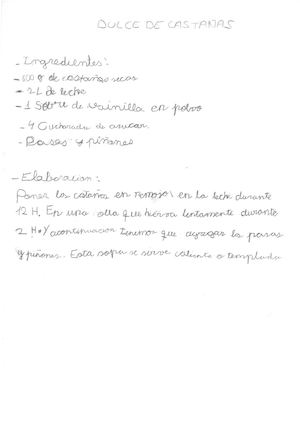 DULCE DE CASTAÑAS
- Ingredientes:
- 800 g de castañas secas
- 2L de leche
- 1 Sobre de vainilla en polvo
- 4 Cucharadas de azucar
- Pasas y piñones
- Elaboracion:
Poner las castañas en remojo en la leche durante
12 H. En una olla que hierva lentamente durante
2 H. Y acontinuacion tenemos que agregar las pasas
y piñones. Esta sopa se serve caliente o templada